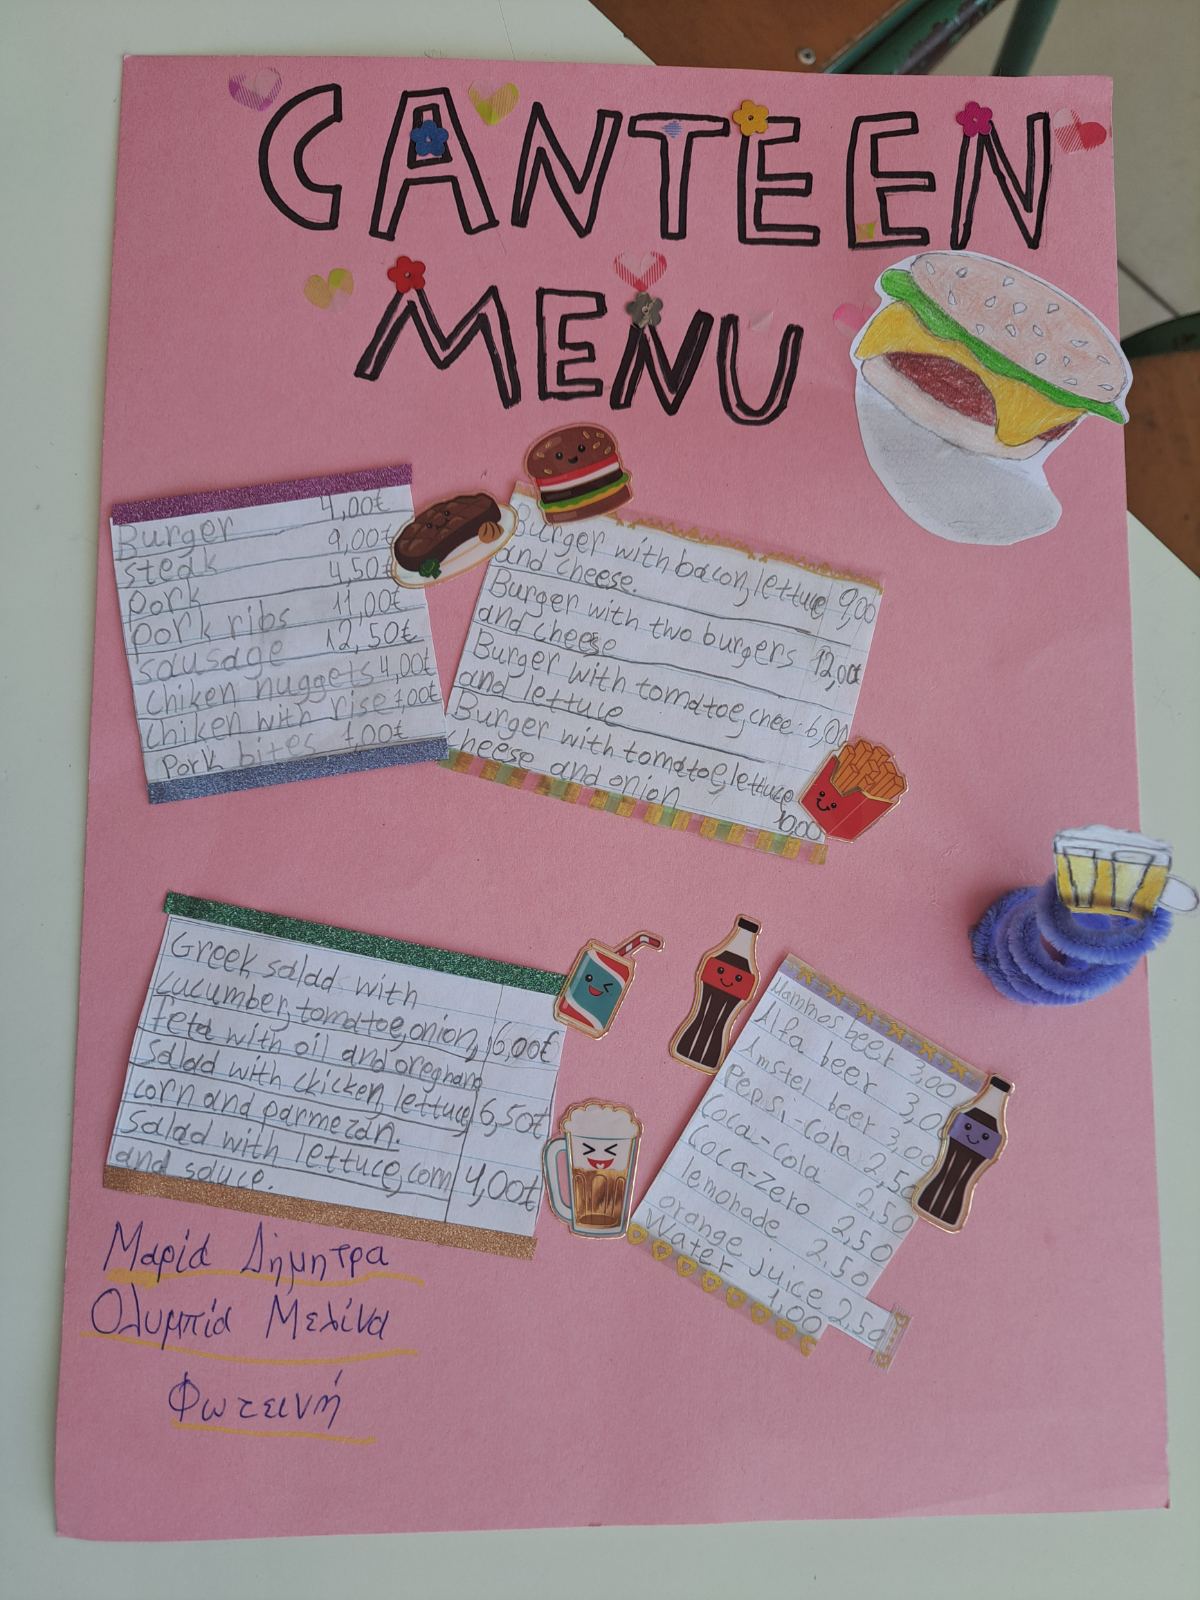 CANTEEN
MENU
Burger 4,00€
steak 9,00€
pork 4,50€
pork ribs 11,00€
sausage 12,50€
chiken nuggets 4,00€
chiken with rise 1,00€
pork bites 1,00€
Burger with bacon, lettuce 9,00
and cheese.
Burger with two burgers 12,00€
and cheese
Burger with tomatoe, chee 6,00
and lettuce
Burger with tomatoe, lettuce
cheese and onion 10,00
Greek salad with
cucumber, tomatoe, onion, 6,00€
feta with oil and oreghano
Salad with chicken, lettuce, 6,50€
corn and parmezan.
Salad with lettuce, corn 4,00€
and sauce.
Mammos beer 3,00
Alfa beer 3,0
Amstel beer 3,00
Pepsi-Cola 2,50
Coca-cola 2,50
Coca-Zero 2,50
lemonade 2,50
orange juice 2,50
Water 1,00
Μαρία Δήμητρα
Ολυμπία Μελίνα
Φωτεινή